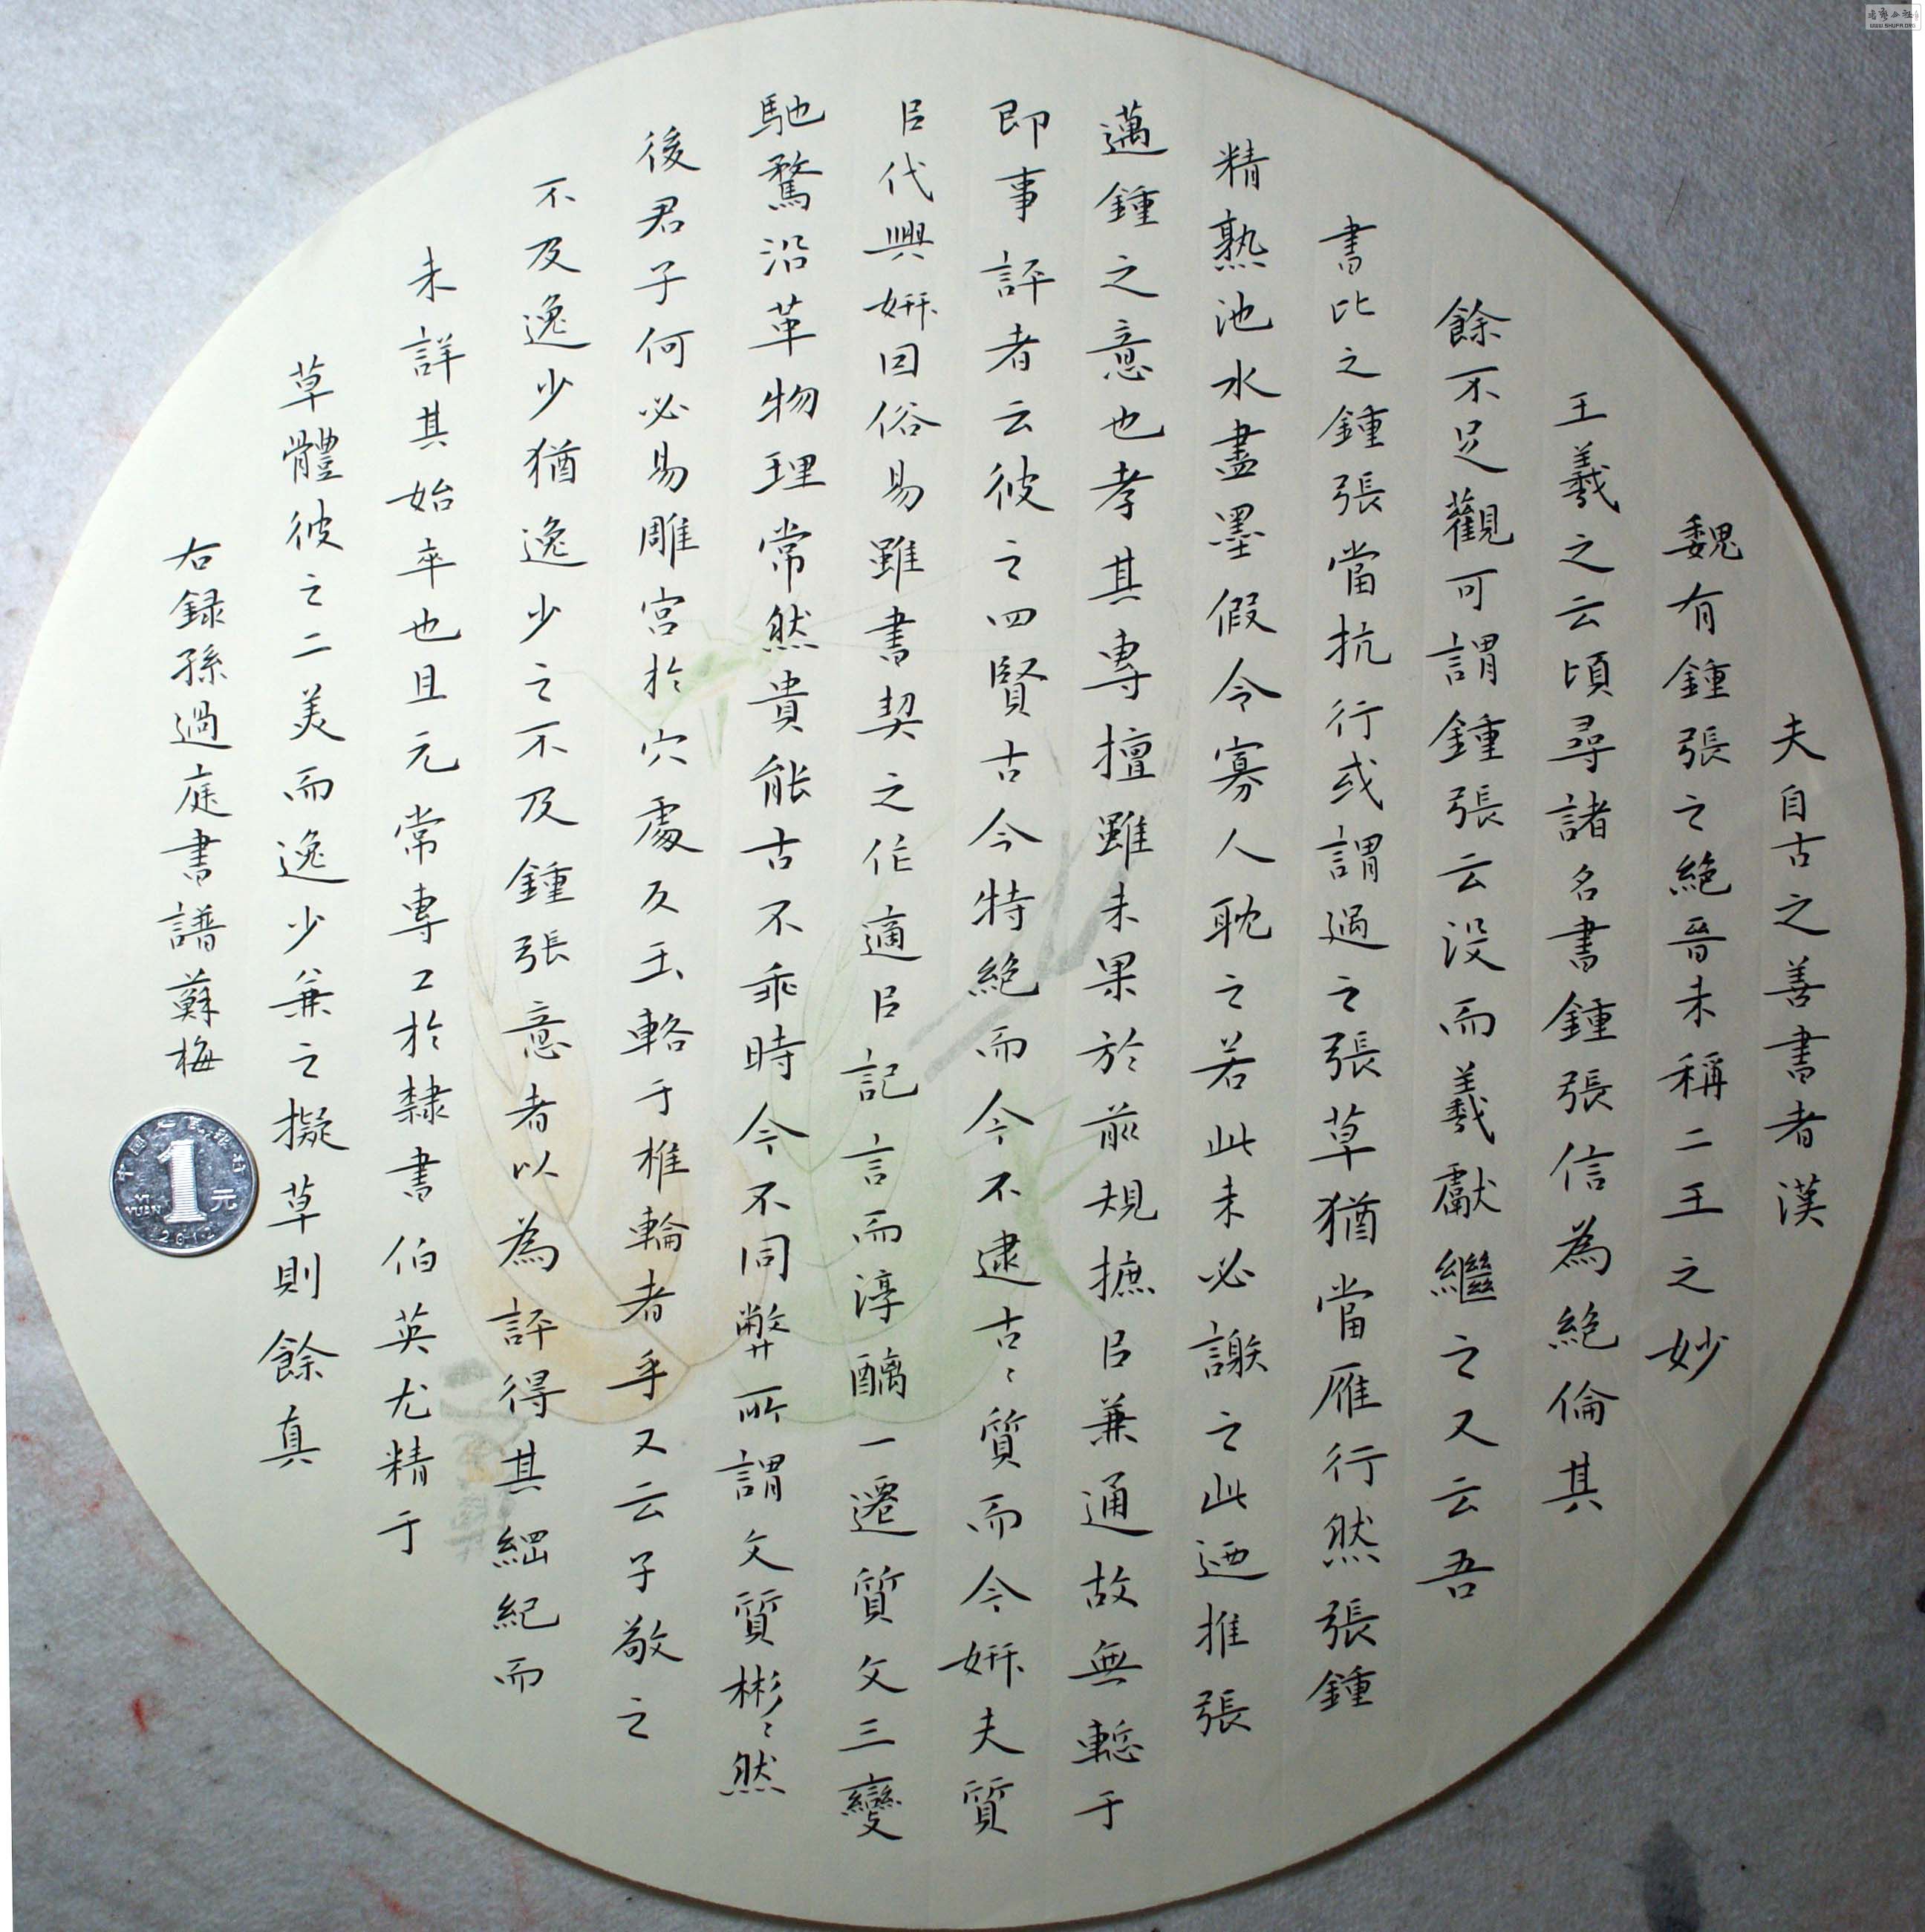 夫自古之善書者漢
魏有鍾張之絕晉末稱二王之妙
王羲之云頃尋諸名書鍾張信為絕倫其
餘不足觀可謂鍾張云沒而羲獻繼之又云吾
書比之鍾張當抗行或謂過之張草猶當雁行然張鍾
精熟池水盡墨假令寡人耽之若此未必謝之此迺推張
邁鍾之意也孝其專擅雖未果於前規摭㠯兼通故無慙于
即事評者云彼之四賢古今特絕而今不逮古〻質而今妍夫質
㠯代興妍因俗易雖書契之作適㠯記言而淳醨一遷質文三變
馳騖沿革物理常然貴能古不乖時今不同弊所謂文質彬〻然
後君子何必易雕宮於穴處反玉輅于椎輪者乎又云子敬之
不及逸少猶逸少之不及鍾張意者以為評得其綱紀而
未詳其始卒也且元常專工於隸書伯英尤精于
草體彼之二美而逸少兼之擬草則餘真
右録孫過庭書譜蘇梅
中國人民銀行
1 元
YI YUAN
2012
WWW.SHUFA.ORG